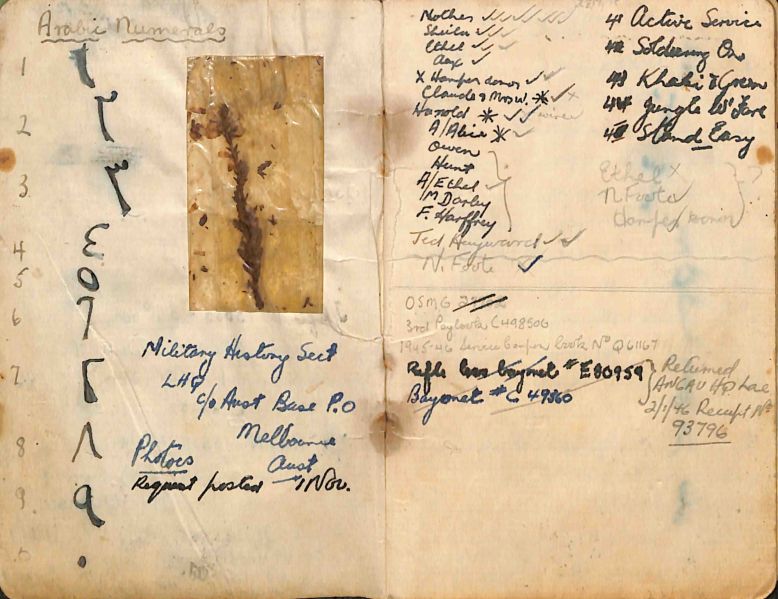 Arabic Numerals
1 ١
2 ٢
3 ٣
4 ٤
5 ٥
6 ٦
7 ٧
8 ٨
9. ٩
0 ٠
Military History Sect
LHQ
c/o Aust Base P.O
Melbourne
Aust
Photoes
Request posted 1 Nov.
Mother ✓✓✓✓✓✓
Sheila ✓✓✓
Ethel ✓✓
✓✓
X Hamper donor ✓✓
Claude & Mrs W. * ✓ x
Harold * ✓✓
A/Alice * ✓
Owen
Hunt
A/Ethel ✓
M Darley
F. Harffrey
Ted Hayward ✓✓
N. Foote ✓
41 Active Service
42 Soldiering On
43 Khaki & Green
44 Jungle W'fare
45 Stand Easy
Ethel x
N Foote ✓
Hamper donor } ?
OSMG
3rd Paybook C498506
1945-46 Service Coupon book Nº Q61167
Rifle less bayonet # E80959
Bayonet # C 49860
Returned
ANGAU HQ Lae
2/1/46 Receipt Nº
93796